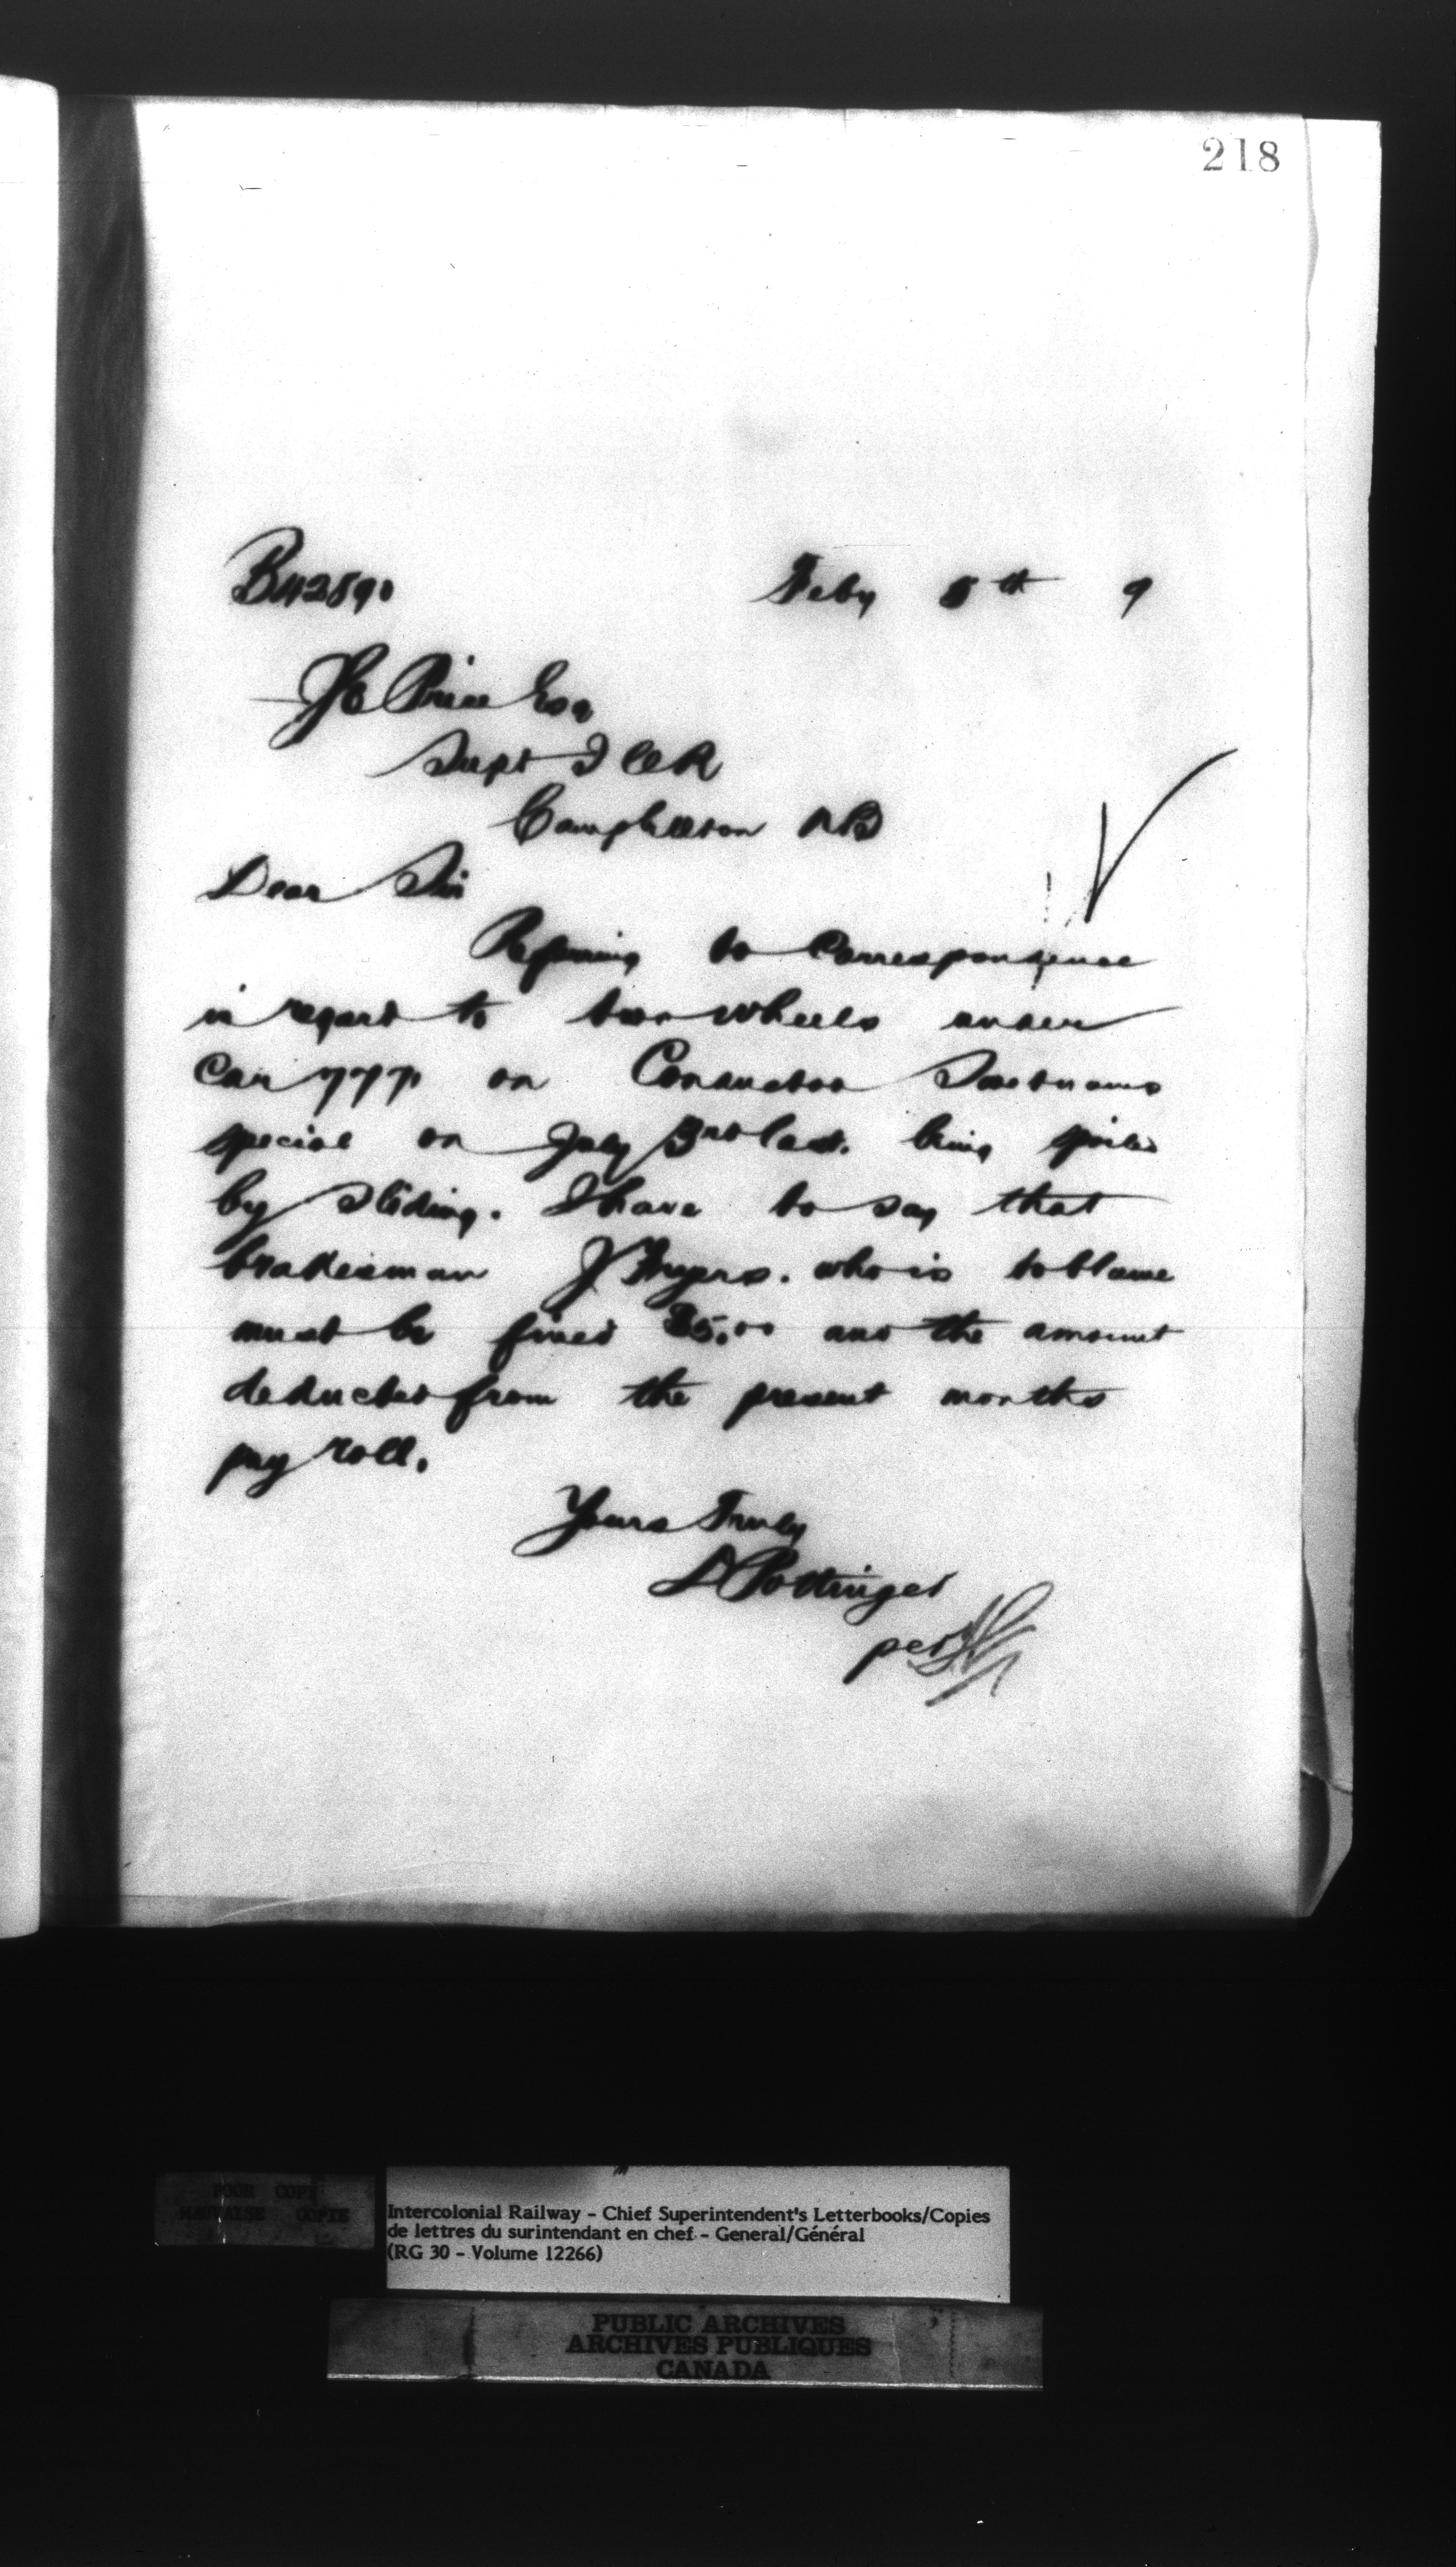 218
B42590
Feby 5th 9
Price Esq
Supt I C R
Campbellton NB
Dear Sir
Referring to Correspondence
in regard to two wheels under
Car 777 on Conductor
special on July 3rd last. being spoiled
by sliding. I have to say that
brakesman J who is to blame
must be fined and the amount
deducted from the present months
pay roll.
Yours Truly
D Pottinger
per
POOR COPY
MAUVAISE COPIE
Intercolonial Railway - Chief Superintendent's Letterbooks/Copies
de lettres du surintendant en chef - General/Général
(RG 30 - Volume 12266)
PUBLIC ARCHIVES
ARCHIVES PUBLIQUES
CANADA